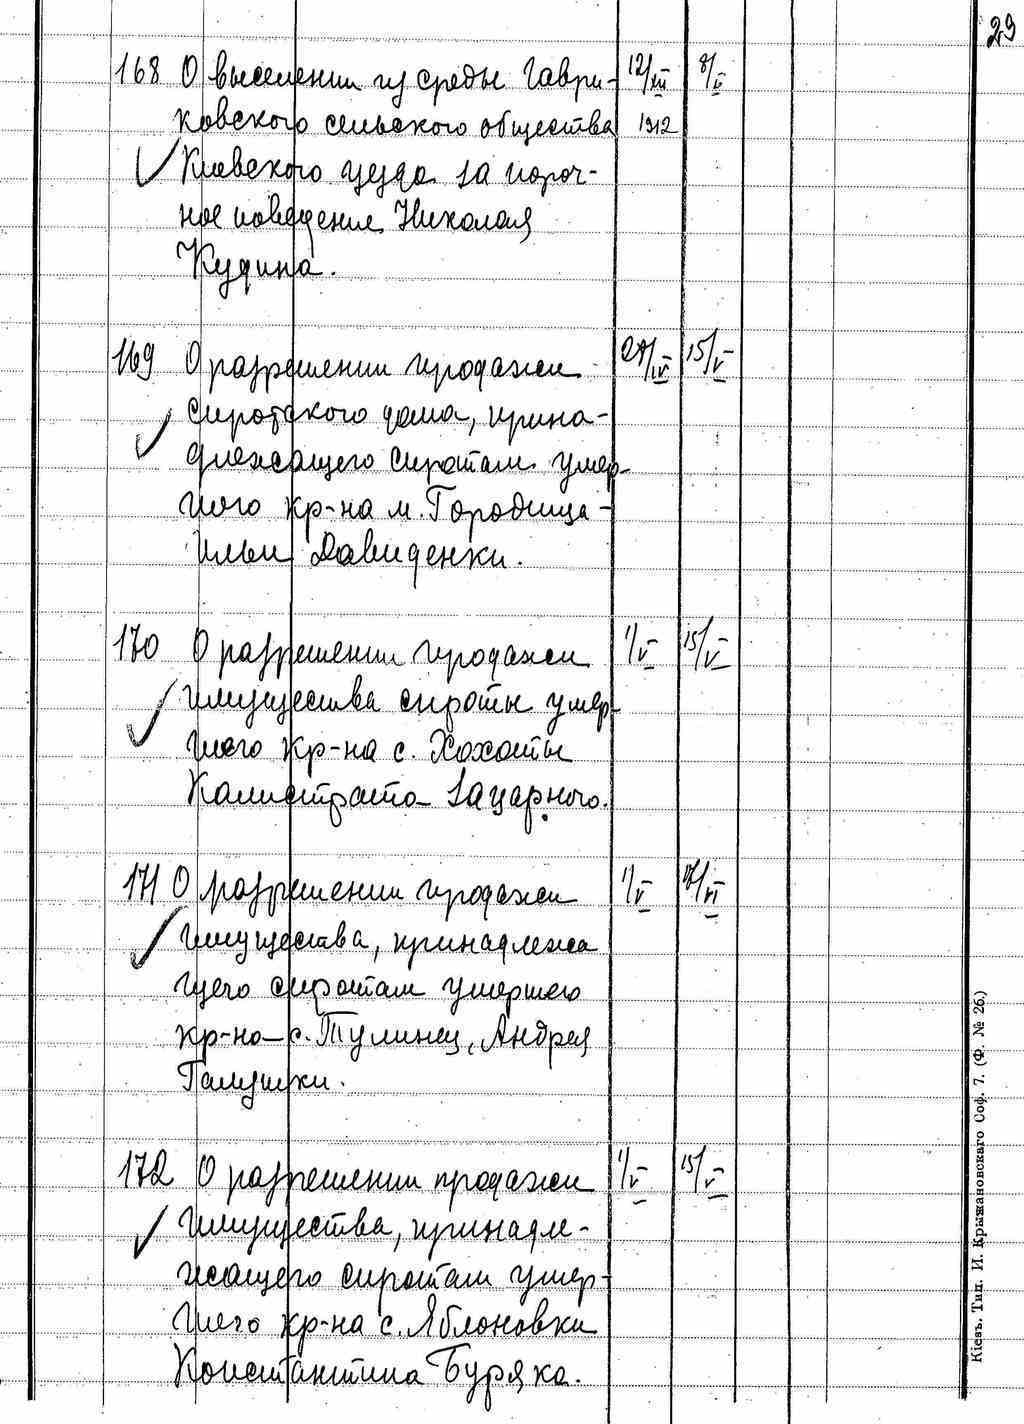 29
168 О выселении из среды Гаври- 12/XII 8/II
ковского сельского общества 1912
Киевского уезда за пороч-
ное поведение Николая
Кудина.
169 О разрешении продажи 29/IV 15/V
сиротского дома, прина-
длежащего сиротам умер-
шего кр-на м. Городища -
Ильи Давиденки.
170 О разрешении продажи 1/V 15/V
имущества сироты умер-
шего кр-на с. Хохоты
Калистрата Зацарного.
171 О разрешении продажи 1/V /VI
имущества, принадлежа
щего сиротам умершего
кр-на с. Тулинец, Андрея
Галушки.
172 О разрешении продажи 1/V 15/V
имущества, принадле-
жащего сиротам умер-
шего кр-на с. Яблоновки
Константина Буряка.
Кіевъ. Тип. И. Крыжановскаго Соф. 7. (Ф. № 26.)